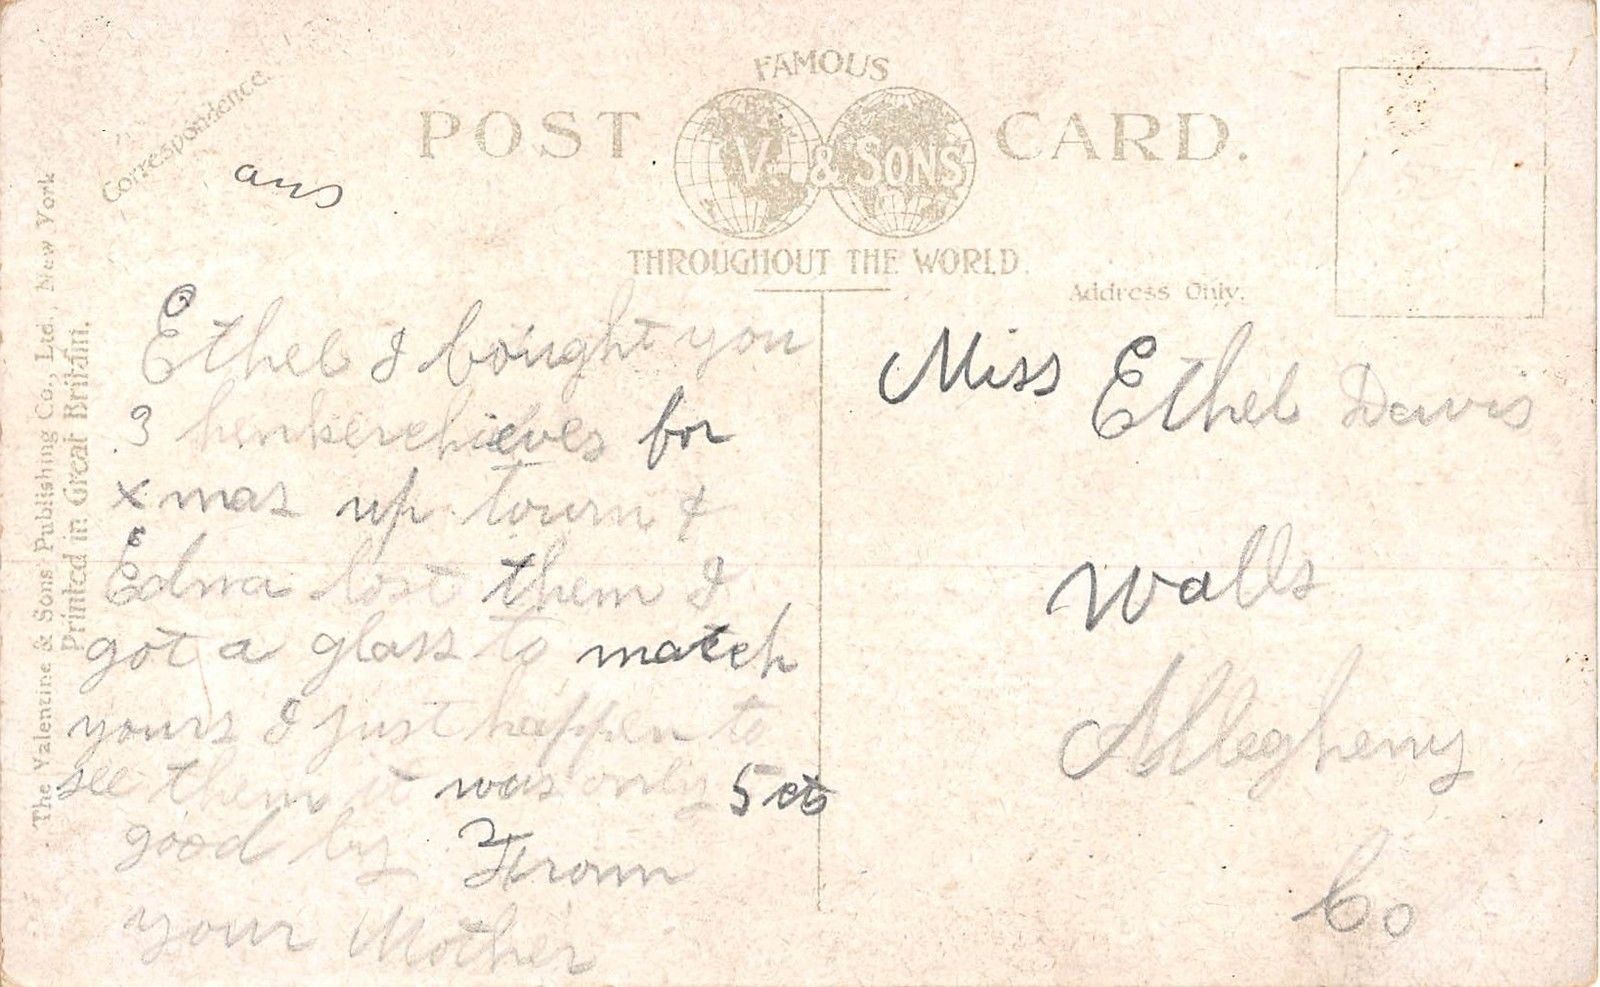 FAMOUS
POST CARD.
V. & SONS
THROUGHOUT THE WORLD
Correspondence.
Address Only.
ans
Ethel I bought you
3 henkerchieves for
xmas up town &
Edna lost them I
got a glass to match
yours I just happen to
see them it was only 5 cts
good by From
your Mother
Miss Ethel Davis
Walls
Allegheny
Co
The Valentine & Sons' Publishing Co., Ltd., New York
Printed in Great Britain.